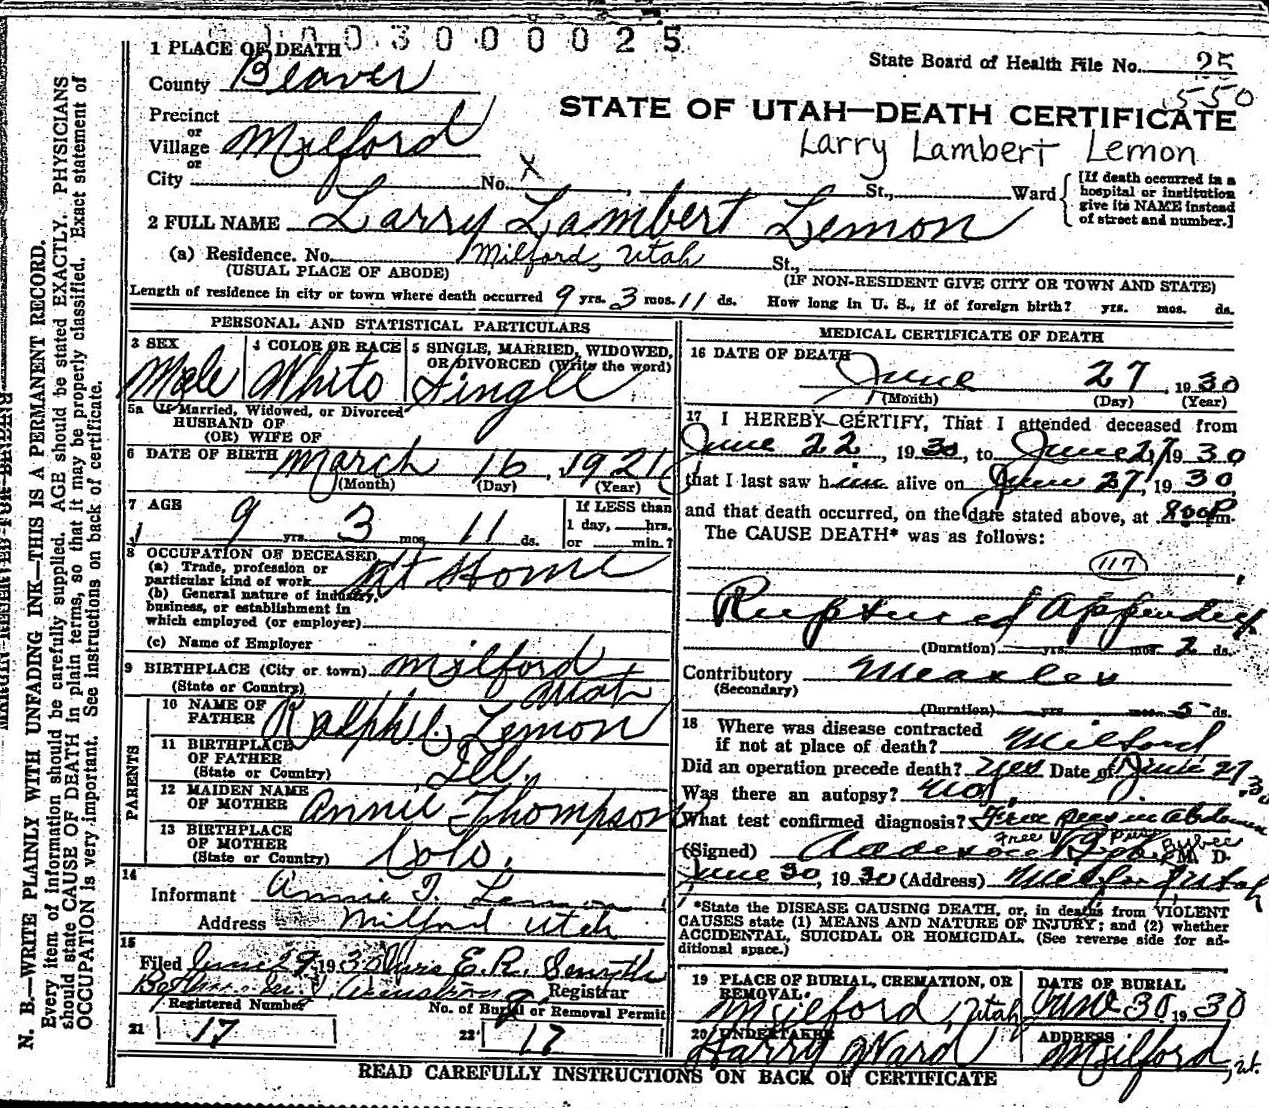 0030000025
1 PLACE OF DEATH
State Board of Health File No. 25
550
County Beaver
STATE OF UTAH—DEATH CERTIFICATE
Precinct
or
Village Milford
or
Larry Lambert Lemon
City No. X St., Ward
[If death occurred in a hospital or institution give its NAME instead of street and number.]
2 FULL NAME Larry Lambert Lemon
(a) Residence. No. Milford, Utah St.,
(USUAL PLACE OF ABODE) (IF NON-RESIDENT GIVE CITY OR TOWN AND STATE)
Length of residence in city or town where death occurred 9 yrs. 3 mos. 11 ds. How long in U. S., if of foreign birth? yrs. mos. ds.
PERSONAL AND STATISTICAL PARTICULARS
3 SEX 4 COLOR OR RACE 5 SINGLE, MARRIED, WIDOWED, OR DIVORCED (Write the word)
Male White Single
5a If Married, Widowed, or Divorced
HUSBAND OF
(OR) WIFE OF
6 DATE OF BIRTH March 16, 1921
(Month) (Day) (Year)
7 AGE 9 yrs. 3 mos. 11 ds.
If LESS than
1 day, hrs.
or min.?
8 OCCUPATION OF DECEASED
(a) Trade, profession or
particular kind of work At Home
(b) General nature of industry,
business, or establishment in
which employed (or employer)
(c) Name of Employer
9 BIRTHPLACE (City or town) Milford
(State or Country) Utah
PARENTS
10 NAME OF
FATHER Ralph L. Lemon
11 BIRTHPLACE
OF FATHER
(State or Country) Ill.
12 MAIDEN NAME
OF MOTHER Annie Thompson
13 BIRTHPLACE
OF MOTHER
(State or Country) Colo.
14
Informant Annie T. Lemon
Address Milford Utah
15
Filed June 29, 1930 Mrs E. R. Smyth
Registrar
Registered Number No. of Burial or Removal Permit
21 17 22 17
MEDICAL CERTIFICATE OF DEATH
16 DATE OF DEATH
June 27, 1930
(Month) (Day) (Year)
17 I HEREBY CERTIFY, That I attended deceased from
June 22, 1930, to June 27, 1930
that I last saw him alive on June 27, 1930,
and that death occurred, on the date stated above, at 8:00 P.m.
The CAUSE DEATH* was as follows:
117
Ruptured Appendix
(Duration) yrs. mos. 2 ds.
Contributory Measles
(Secondary)
(Duration) yrs. mos. 5 ds.
18 Where was disease contracted
if not at place of death? Milford
Did an operation precede death? Yes Date of June 27, 30
Was there an autopsy? No
What test confirmed diagnosis? Free pus in Abdomen
Free pus
(Signed) M. D.
June 30, 1930 (Address) Milford Utah
*State the DISEASE CAUSING DEATH, or, in deaths from VIOLENT
CAUSES state (1) MEANS AND NATURE OF INJURY; and (2) whether
ACCIDENTAL, SUICIDAL OR HOMICIDAL. (See reverse side for ad-
ditional space.)
19 PLACE OF BURIAL, CREMATION, OR
REMOVAL.
Milford, Utah
DATE OF BURIAL
June 30 1930
20 UNDERTAKER
Harry Ward
ADDRESS
Milford, ut.
READ CAREFULLY INSTRUCTIONS ON BACK OF CERTIFICATE
N. B.—WRITE PLAINLY WITH UNFADING INK—THIS IS A PERMANENT RECORD.
Every item of information should be carefully supplied. AGE should be stated EXACTLY. PHYSICIANS
should state CAUSE OF DEATH in plain terms, so that it may be properly classified. Exact statement of
OCCUPATION is very important. See instructions on back of certificate.